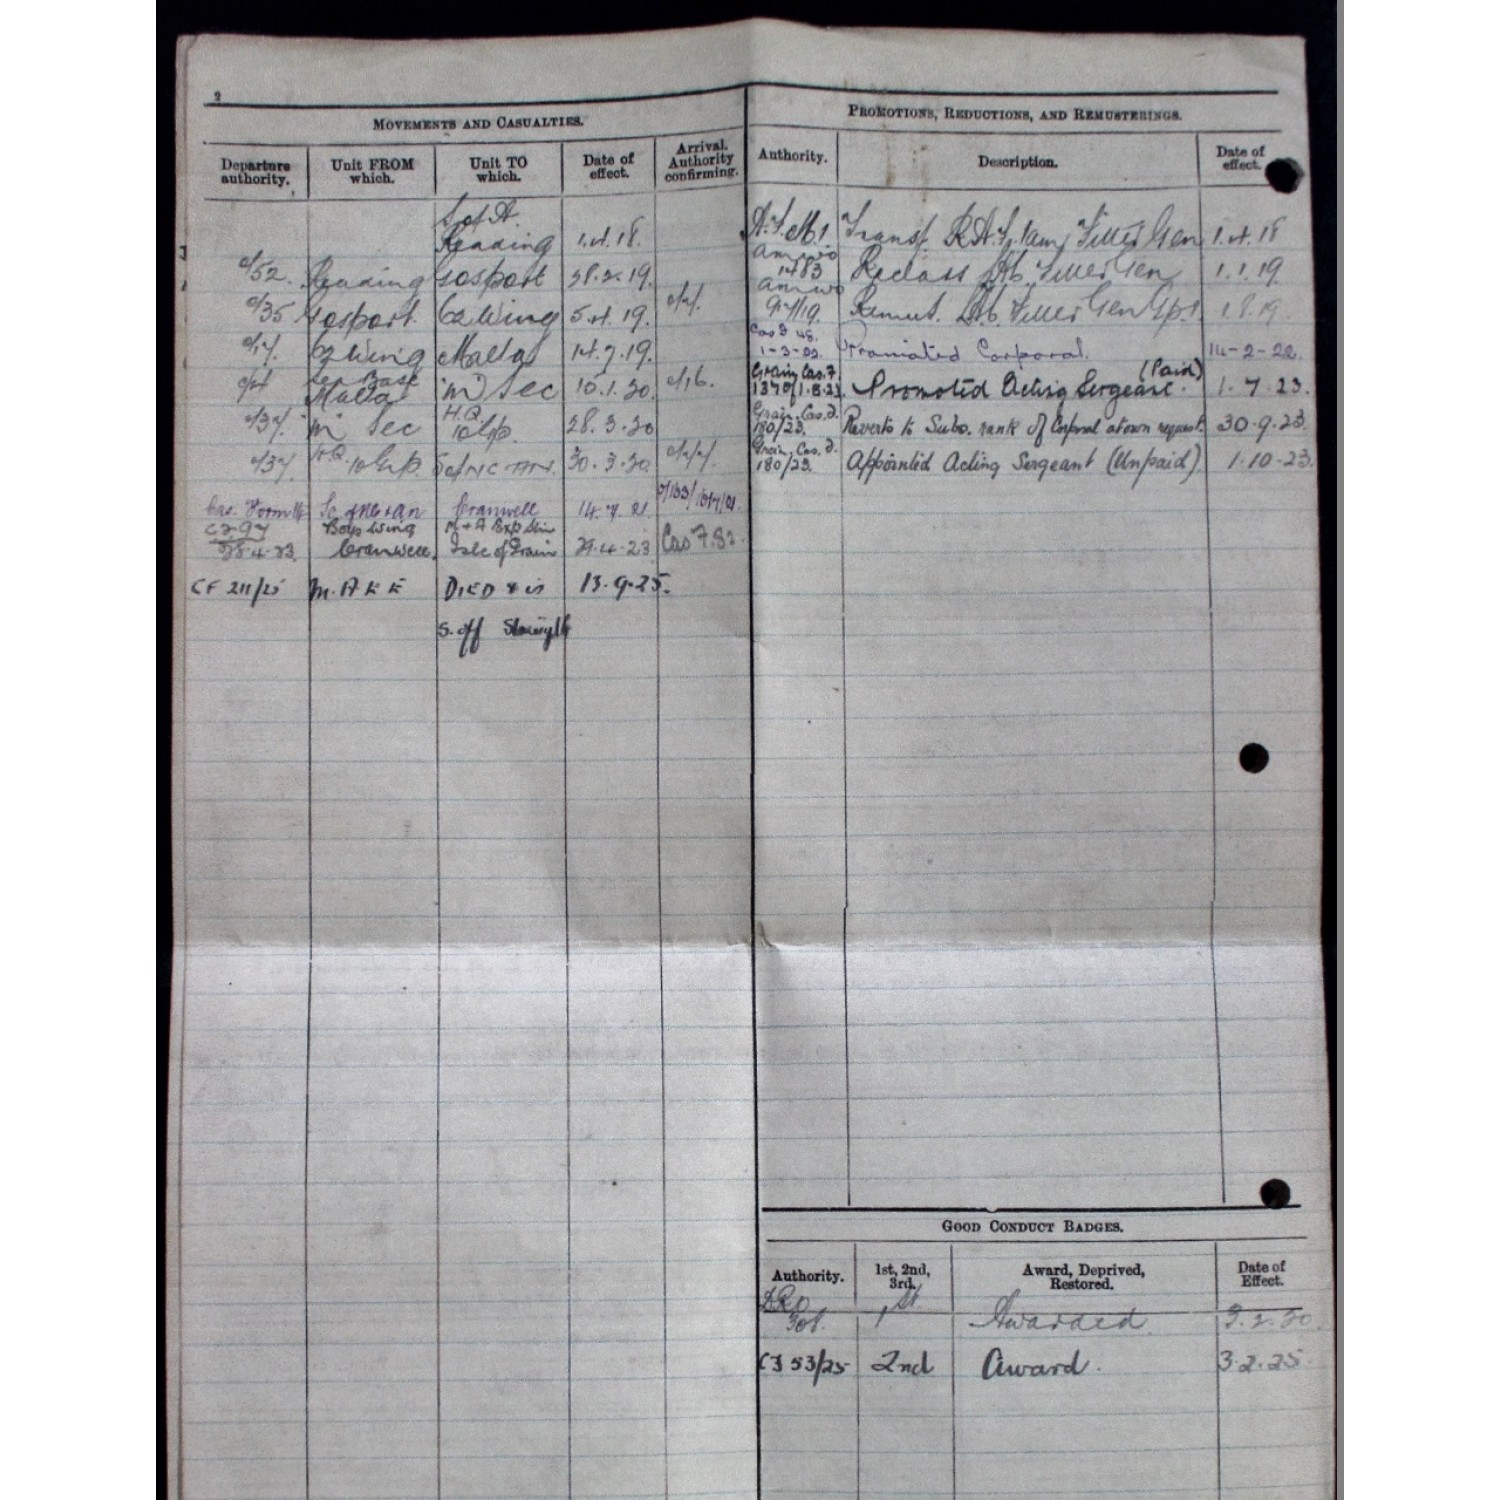 2
MOVEMENTS AND CASUALTIES.
Departure authority.
Unit FROM which.
Unit TO which.
Date of effect.
Arrival. Authority confirming.
S of A.
Reading 1.4.18.
o/52. Reading Gosport 28.2.19.
o/35 Gosport. 62 Wing 5.4.19.
62 Wing Malta 14.7.19.
Malta "M" Sec 10.1.20. o/16.
o/37. "M" Sec H.Q. 28.3.20
o/37. H.Q. 30.3.20.
Cranwell 14.7.21.
C.F.97 Boys Wing M+A Exp Stn
28.4.23. Cranwell. Isle of Grain 29.4.23 Cas F.82.
CF 211/25 M.A.E.E DIED & is 13.9.25.
S. off Strength
PROMOTIONS, REDUCTIONS, AND REMUSTERINGS.
Authority.
Description.
Date of effect.
Transf. R.A.F. Fitter Gen 1.4.18
1483 Reclass Fitter Gen 1.1.19.
Remus. Fitter Gen 1.8.19.
Cas F 48.
1-3-22. Promoted Corporal. 14-2-22.
Grain Cas. F. (Paid)
137 of 1.8.23. Promoted Acting Sergeant. 1.7.23.
Grain. Cas. F.
180/23. Reverts to Subs. rank of Corporal at own request. 30.9.23.
Grain. Cas. F.
180/23. Appointed Acting Sergeant (Unpaid) 1.10.23.
GOOD CONDUCT BADGES.
Authority.
1st, 2nd, 3rd.
Award, Deprived, Restored.
Date of Effect.
DRO 1st Awarded. 3.2.20.
CF 53/25 2nd Award. 3.2.25.